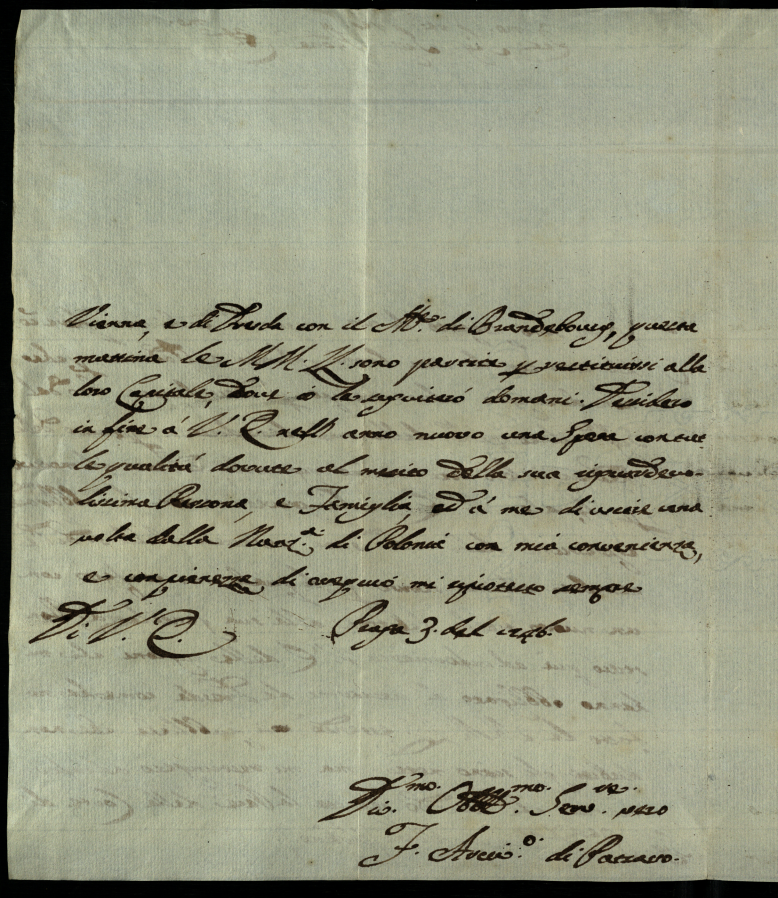 Vienna, e di Dresda con il Mse. di Brandebourg, questa
mattina le MM. LL. sono partite p restituirsi alla
loro Capitale, dove io le seguiterò domani. Desidero
in fine á V. P. nell anno nuovo una
le qualitá dovute al merito della sua riguardevo-
lissima Persona, e Famiglia, ed á me di uscire una
volta dalla Nunz.a di Polonia con mia convenienza,
e con pienezza di ossequio mi riprotesto sempre
Di V. P. Praga 3. del 1746.
Div.mo. Obb.mo. Serv.re. vero
F. Arciv.o di Patrasso.